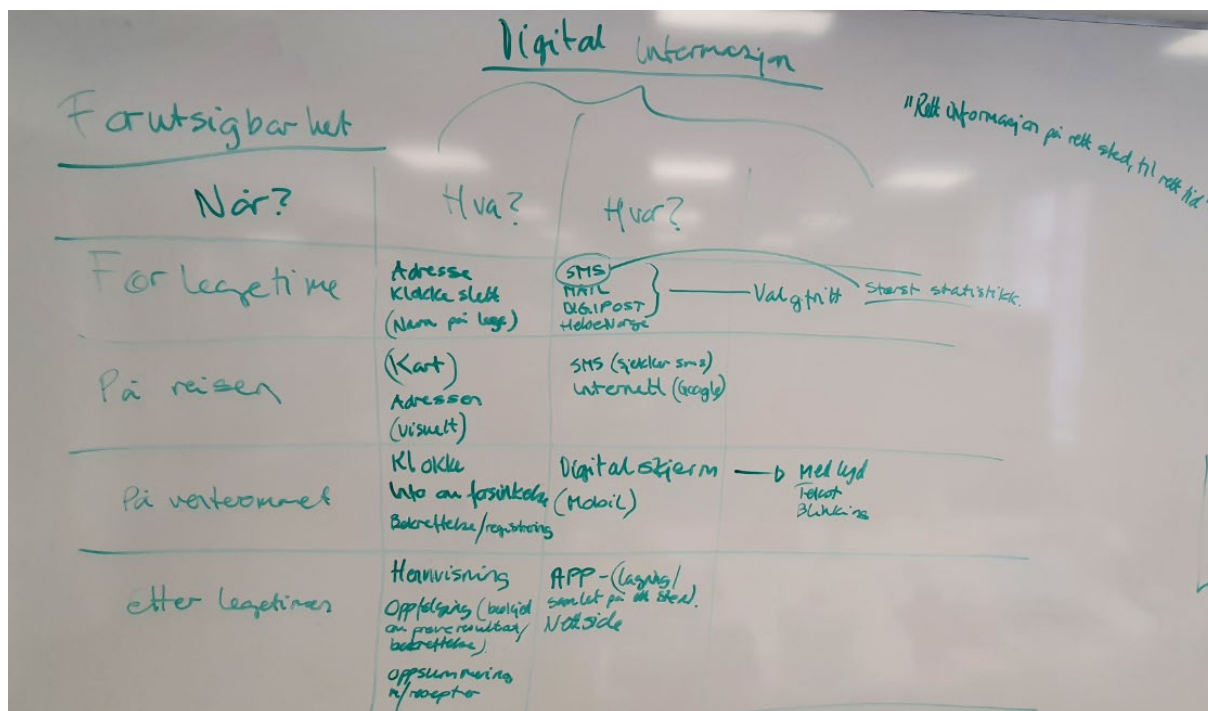 Digital informasjon
Forutsigbarhet
"Rett informasjon på rett sted, til rett tid"
Når?
Hva?
Hvor?
Før legetime
Adresse
Klokke slett
(Navn på lege)
SMS
MAIL
DIGIPOST
HelseNorge
Valgfritt
Størst statistikk.
På reisen
(Kart)
Adressen
(visuelt)
SMS (sjekker sms)
internett (Google)
På venterommet
Klokke
Info om forsinkelse
Bekreftelse/registrering
Digital skjerm
(Mobil)
Med lyd
Tekst
Blinking
etter legetimen
Henvisning
Oppfølging (beskjed
om prøveresultat/
bekreftelse).
oppsummering
m/resepter
APP - (lagring/
samlet på ett sted).
Nettside